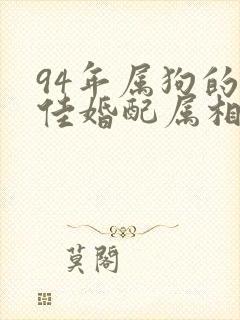 94年属狗的
佳婚配属相
莫阁